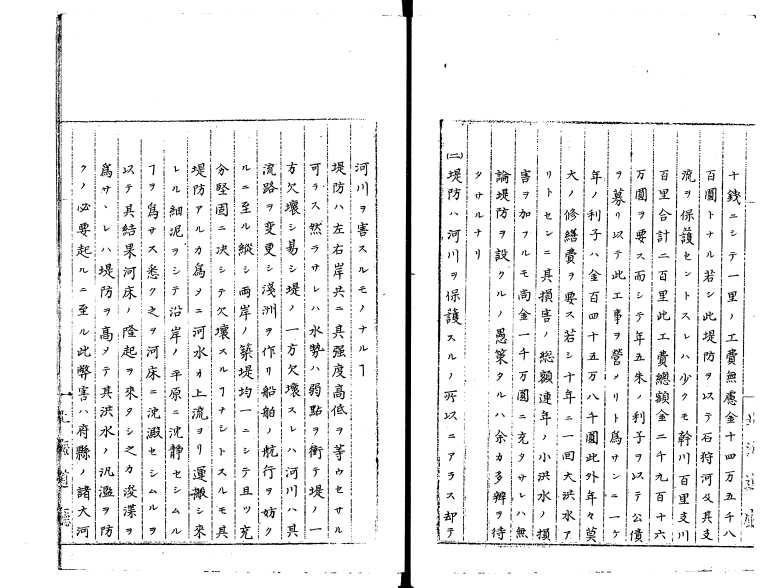 十錢ニシテ一里ノ工費無慮金十四万五千八
百圓トナル若シ此堤防ヲ以テ石狩河及其支
流ヲ保護セントスレハ少クモ幹川百里支川
百里合計二百里此工費總額金二千九百十六
万圓ヲ要ス而シテ年五朱ノ利子ヲ以テ公債
ヲ募リ以テ此工事ヲ營メリト爲サンニ一ケ
年ノ利子ハ金百四十五万八千圓此外年々莫
大ノ修繕費ヲ要ス若シ十年ニ一回大洪水ア
リトセンニ其損害ノ総額連年ノ小洪水ノ損
害ヲ加フルモ尚金一千万圓ニ充タサレハ無
論堤防ヲ設クルノ愚策タルハ余カ多辨ヲ待
タサルナリ
(二)堤防ハ河川ヲ保護スルノ所以ニアラス却テ
河川ヲ害スルモノナルヿ
堤防ハ左右岸共ニ其强度高低ヲ等ウセサル
可ラス然ラサレハ水勢ハ弱點ヲ衝テ堤ノ一
方欠壞シ易シ堤ノ一方欠壞スレハ河川ハ其
流路ヲ変更シ淺洲ヲ作リ船舶ノ航行ヲ妨ク
ルニ至ル縱シ両岸ノ築堤均一ニシテ且ツ充
分堅固ニ决シテ欠壞スルヿナシトスルモ其
堤防アルカ爲メニ河水カ上流ヨリ運搬シ來
レル細泥ヲシテ沿岸ノ平原ニ沈靜セシムル
ヿヲ爲サス悉ク之ヲ河床ニ沈澱セシムルヲ
以テ其結果河床ノ隆起ヲ來タシ之カ浚渫ヲ
爲サヽレハ堤防ヲ高メテ其洪水ノ汎濫ヲ防
クノ必要起ルニ至ル此弊害ハ府縣ノ諸大河
北海道廳
北海道廳